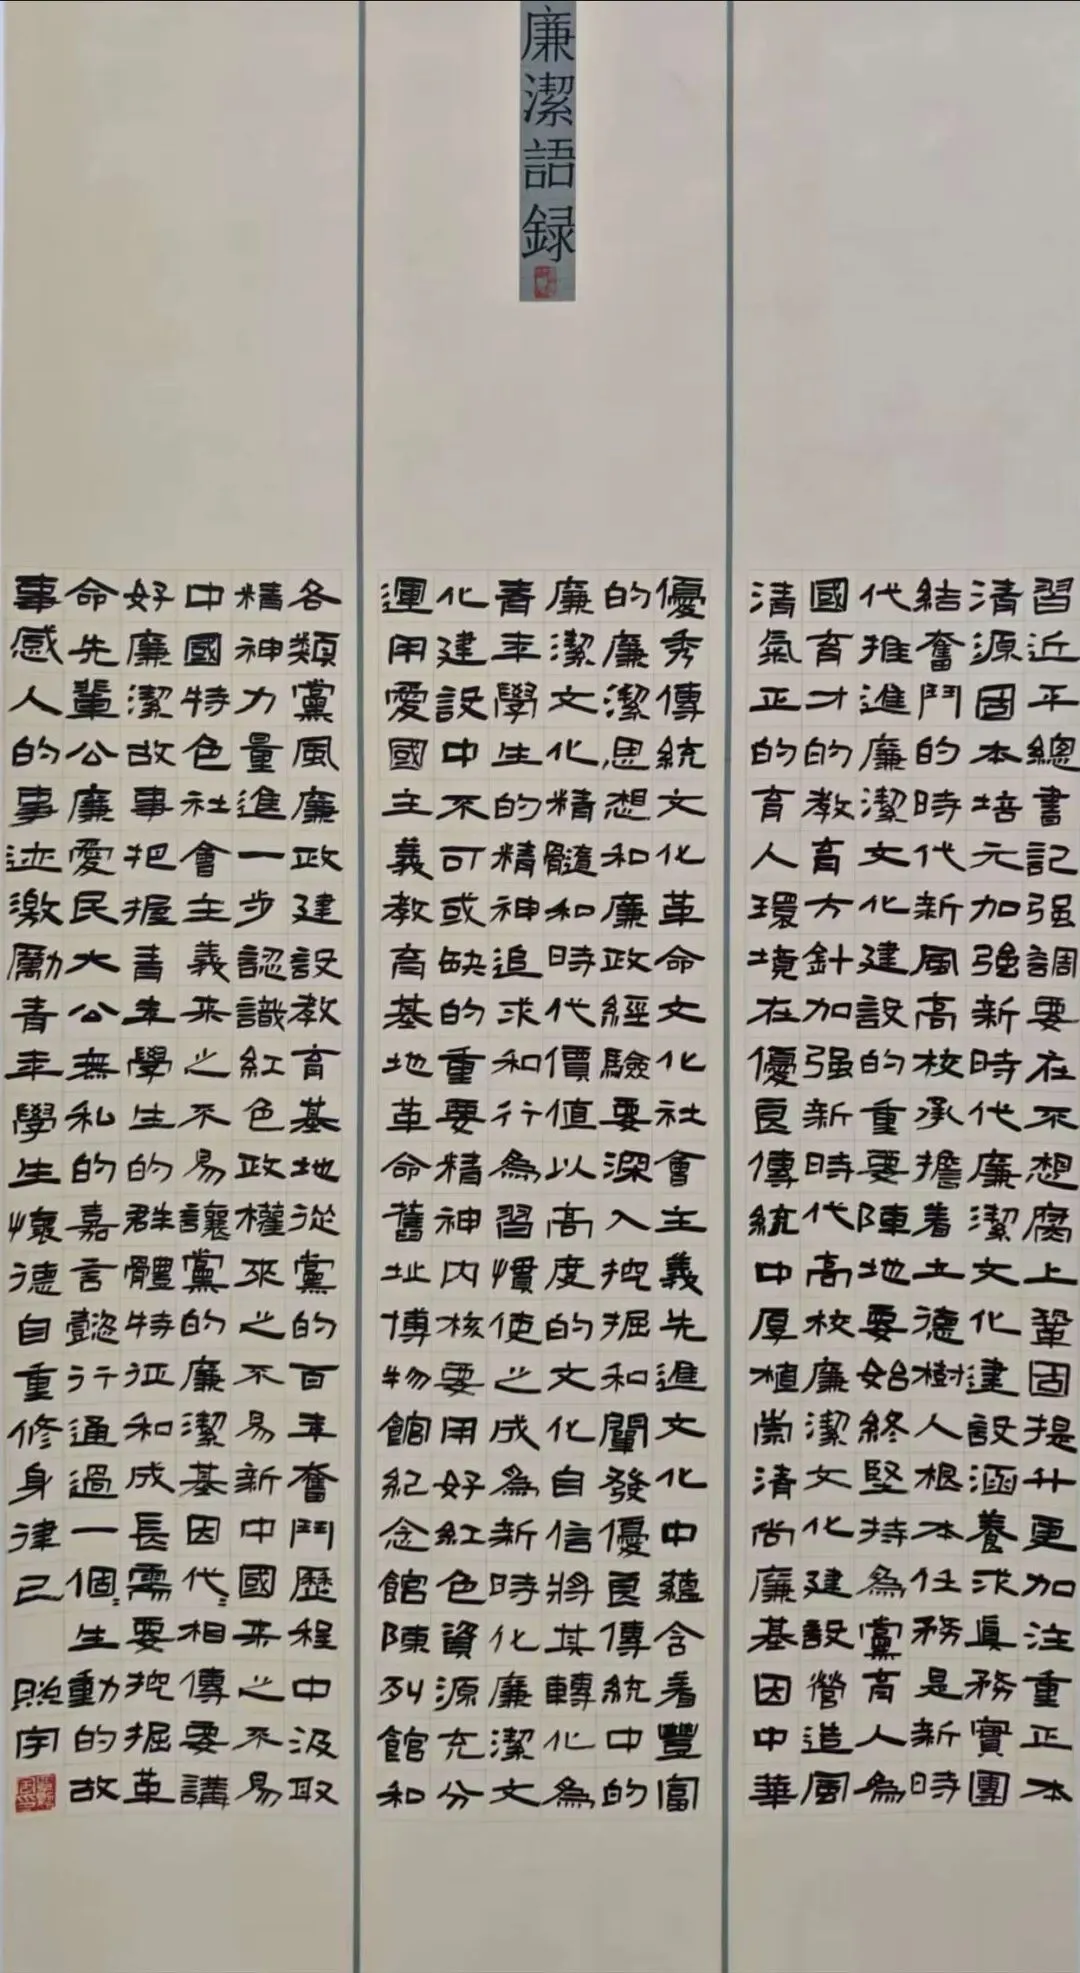 廉潔語録
習近平總書記强調要在不想腐上鞏固提升更加注重正本
清源固本培元加強新時代廉潔文化建設涵養求真務實團
結奮鬥的時代新風高校承擔着立德樹人根本任務是新時
代推進廉潔文化建設的重要陣地要始終堅持為黨育人為
國育才的教育方針加强新時代高校廉潔文化建設營造風
清氣正的育人環境在優良傳統中厚植崇清尚廉基因中華
優秀傳統文化革命文化社會主義先進文化中蘊含着豐富
的廉潔思想和廉政經驗要深入挖掘和闡發優良傳統中的
廉潔文化精髓和時代價值以高度的文化自信將其轉化為
青年學生的精神追求和行為習慣使之成為新時化廉潔文
化建設中不可或缺的重要精神内核要用好紅色資源充分
運用愛國主義教育基地革命舊址博物館紀念館陳列館和
各類黨風廉政建設教育基地從黨的百年奮鬥歷程中汲取
精神力量進一步認識紅色政權來之不易新中國來之不易
中國特色社會主義來之不易讓黨的廉潔基因代〻相傳要講
好廉潔故事把握青年學生的群體特征和成長需要挖掘革
命先輩公廉愛民大公無私的嘉言懿行通過一個〻生動的故
事感人的事迹激勵青年學生懷德自重修身律己